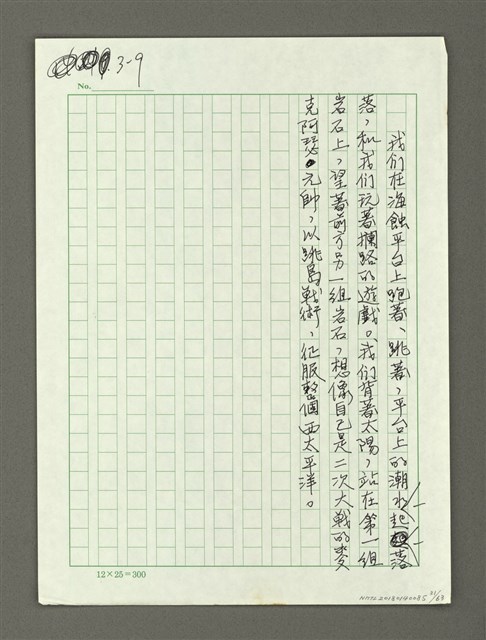 3-9
No.
我们在海蝕平台上跑著、跳著，平台上的潮水起落
落，和我们玩著攔路的遊戲。我们背著太陽，站在第一組
岩石上，望著前方另一組岩石，想像自己是二次大戰的麥
克阿瑟元帥，以跳島戰術，征服整個西太平洋。
12×25=300
NMTL20180140085